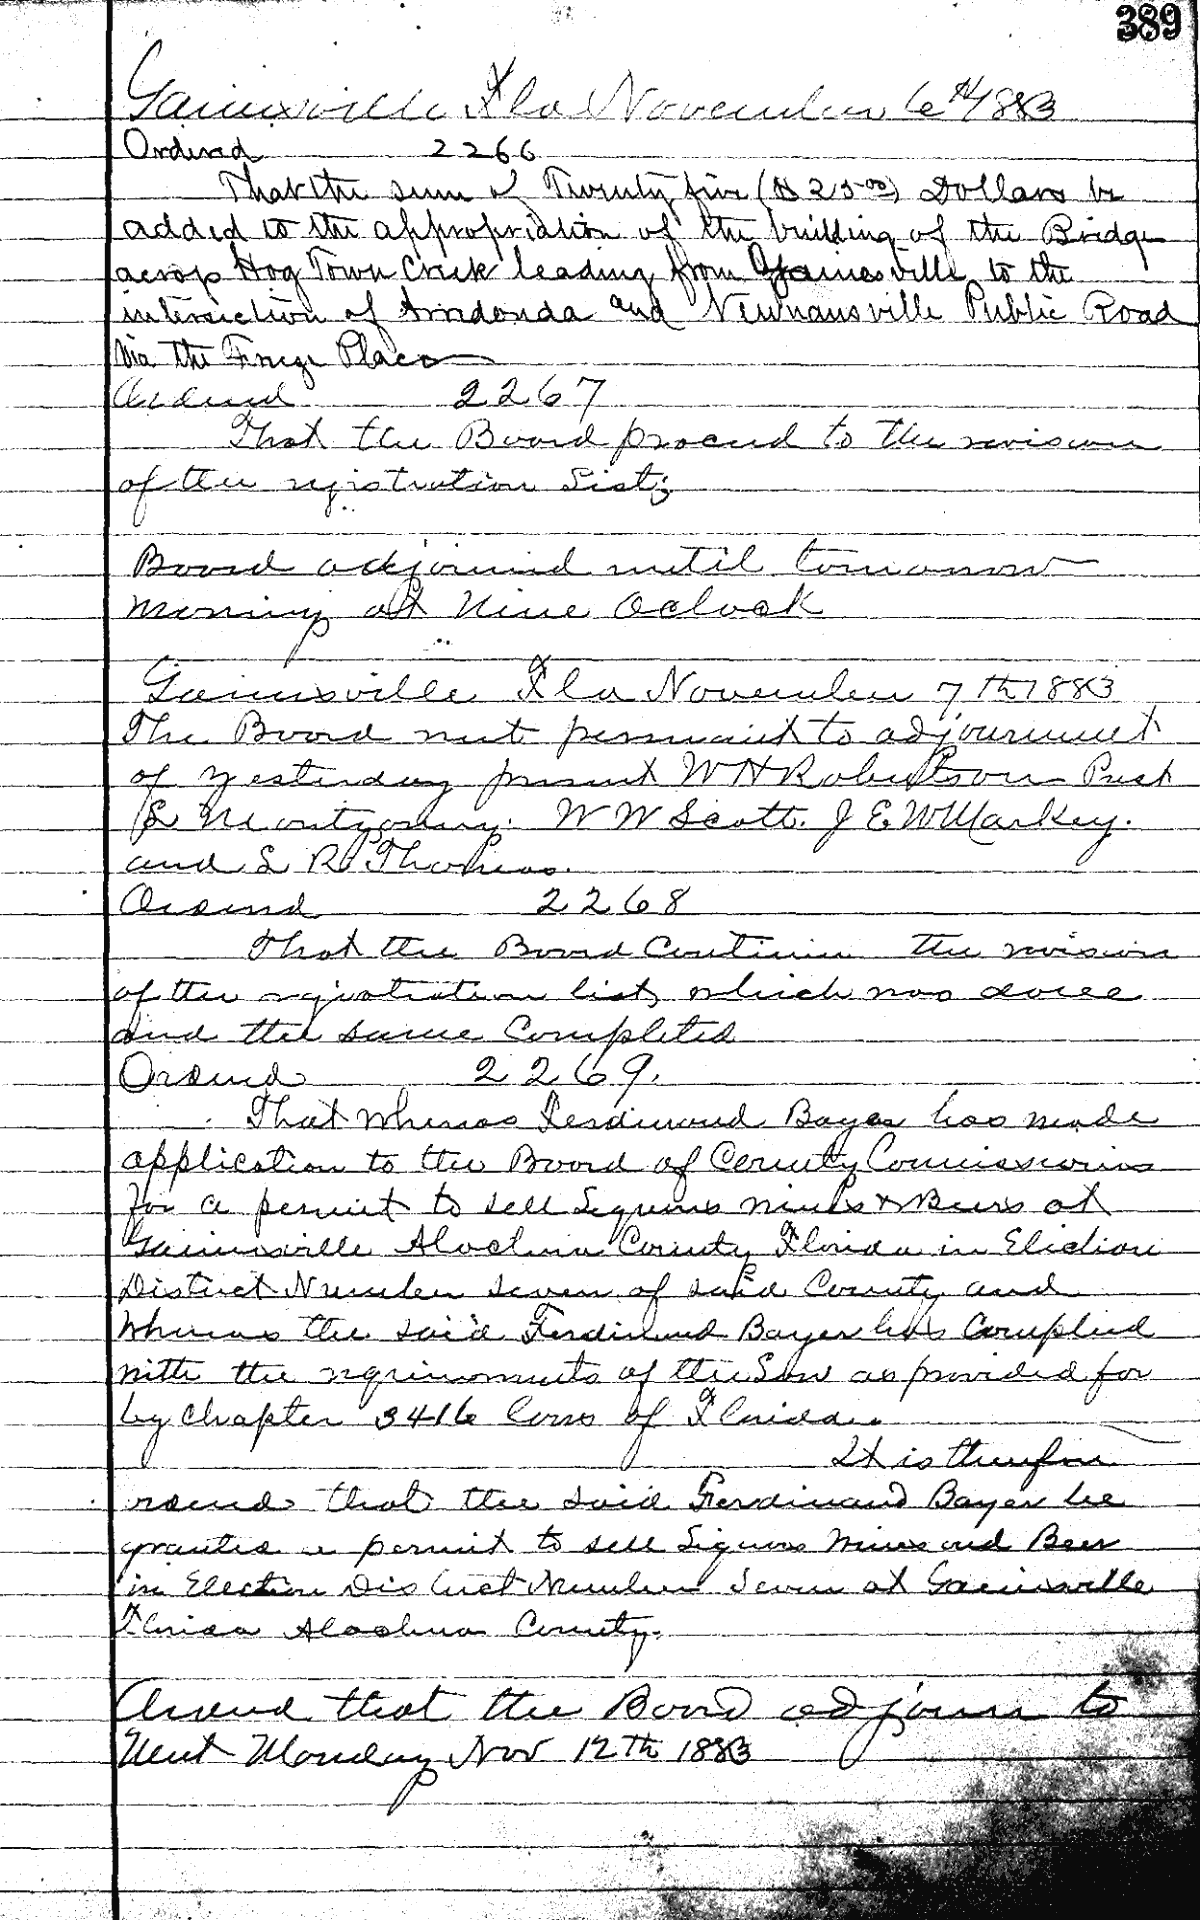 389
Gainesville Fla November 6th 1883
Ordered 2266
That the sum of Twenty five ($25.00) Dollars be
added to the appropriation of the building of the Bridge
across Hog Town Creek leading from Gainesville to the
intersection of Arredonda and Newnansville Public Road
Via the Place
Ordered 2267
That the Board proceed to the revision
of the registration List;
Board adjourned until tomorrow
morning at Nine Oclock
Gainesville Fla November 7th 1883
The Board met persuant to adjournment
of yesterday present W H Robertson Prest
L Montgomery. W W Scott. J E W Markey.
and S R Thomas.
Ordered 2268
That the Board Continue the revision
of the registration list, which was done
and the same Completed
Ordered 2269.
That Whereas Ferdinand Bayer has made
application to the Board of County Commissioners
for a permit to sell Liquors Wines & Beers at
Gainesville Alachua County Florida in Election
District Number Seven of said County and
Whereas the said Ferdinand Bayer has Complied
with the requirements of the Law as provided for
by Chapter 3416 laws of Florida.
It is therefore
ordered that the said Ferdinand Bayer be
granted a permit to sell Liquors Wines and Beer
in Election District Number Seven at Gainesville
Florida Alachua County.
Ordered that the Board adjourn to
Next Monday Nov 12th 1883